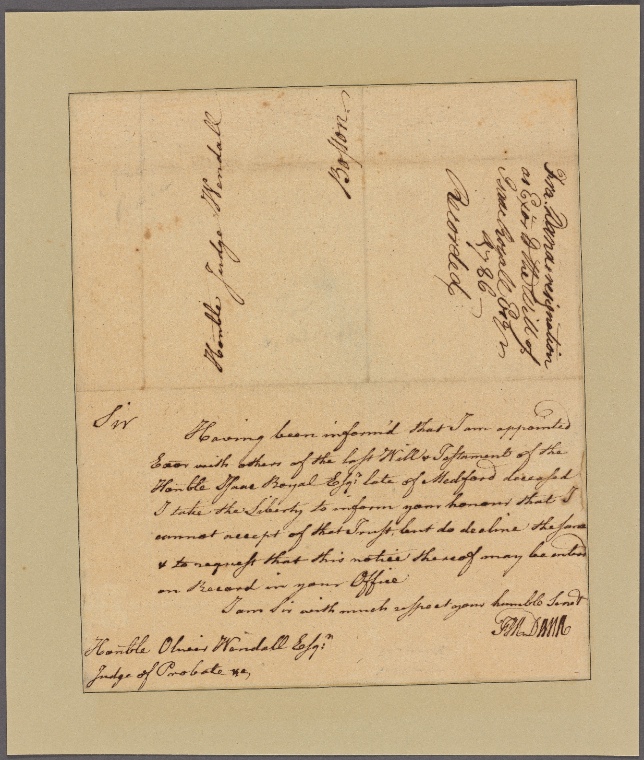 Honble Judge Wendall
Boston
Fra. Dana's resignation
as Exor. to the Will of
Isaac Royall Esqr
1786
Recorded
Sir
Having been inform'd that I am appointed
Exor with others of the last Will & Testament of the
Honble Isaac Royal Esqr. late of Medford deceased
I take the Liberty to inform your honour that I
cannot accept of that Trust, but do decline the same
& to request that this notice thereof may be enterd
on Record in your Office
I am Sir with much respect your humble Servt
FRA DANA
Honble Oliver Wendall Esqr.
Judge of Probate &c,